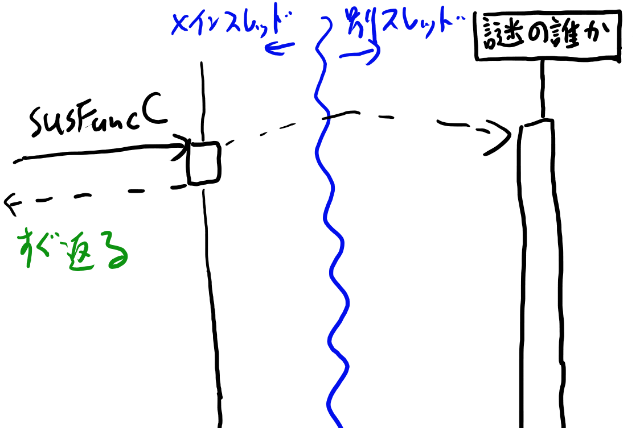 メインスレッド
別スレッド
謎の誰か
susFuncC
すぐ返る